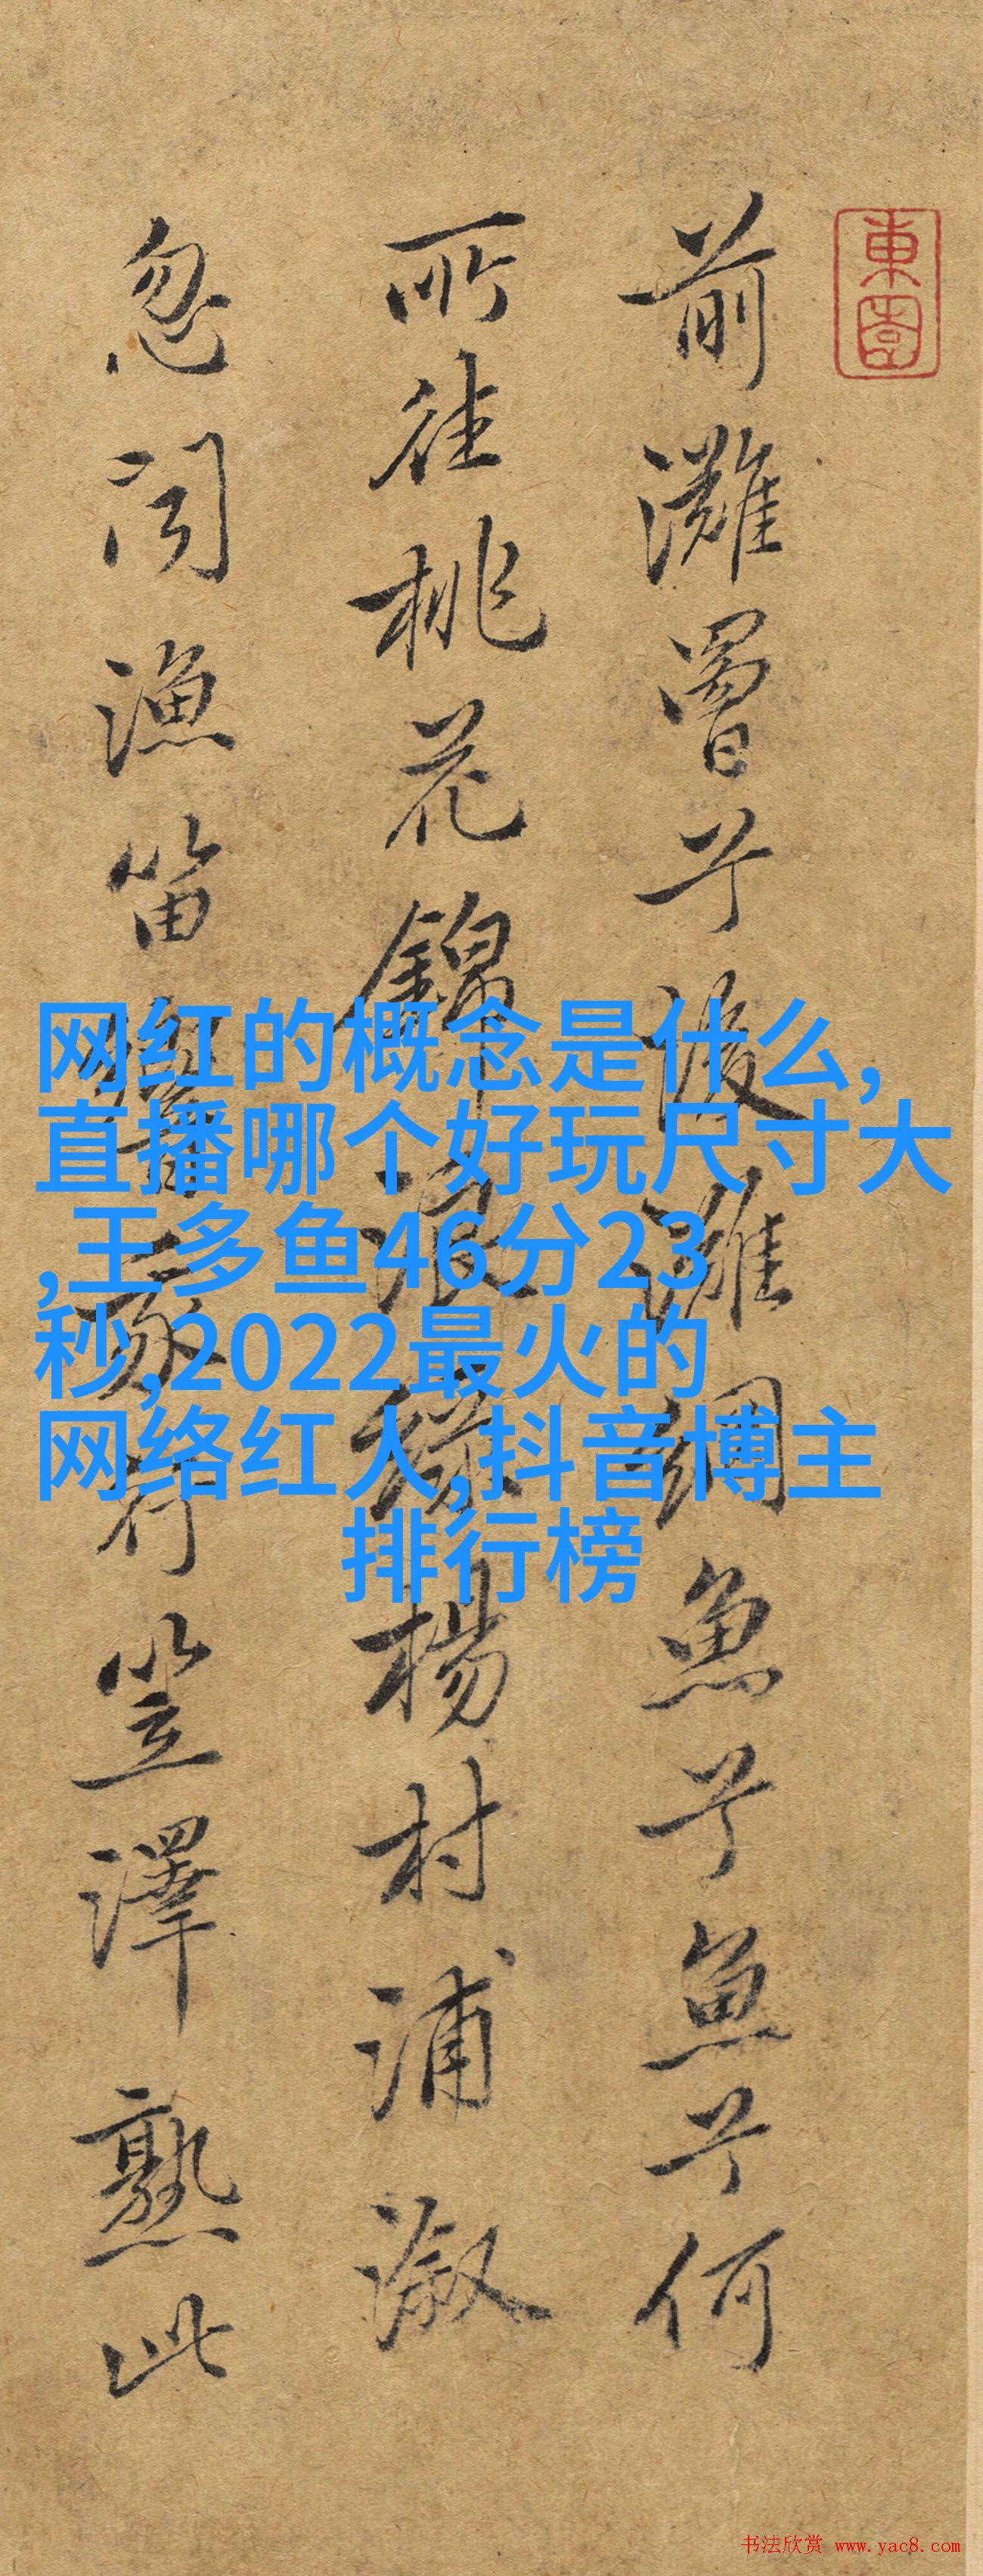 東
前灘罾兮後灘網魚兮魚兮何
所往桃花錦浪綠楊村浦溆
忽聞漁笛響行笠澤熟此
网红的概念是什么,
直播哪个好玩尺寸大
,王多鱼46分23
秒,2022最火的
网络红人,抖音博主
排行榜
书法欣赏 www.yac8.com